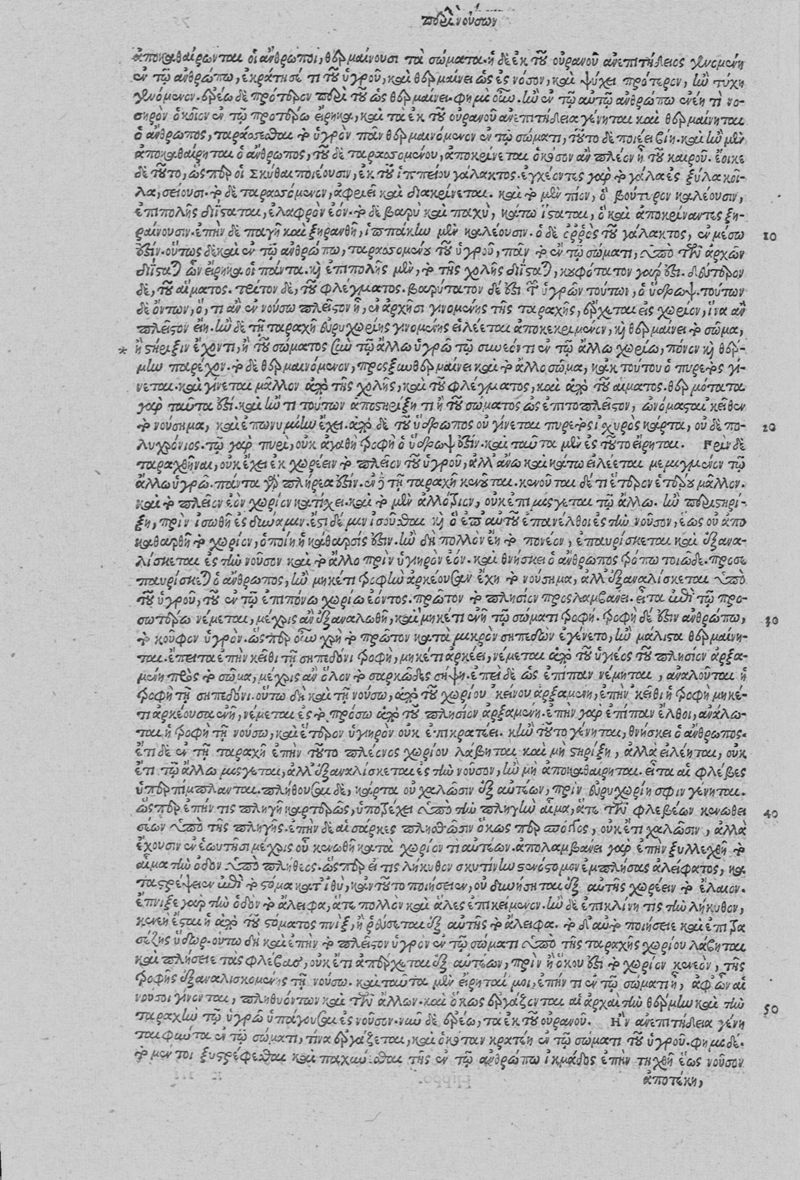 περὶ νούσων
ἀποκαθαίρωνται οἱ ἄνθρωποι, θερμαίνουσι τὰ σώματα. ἡ δὲ ἐκ τοῦ οὐρανοῦ ἀνεπιτήδειος γινομένη
ἐν τῷ ἀνθρώπῳ, ἐκράτησέ τι τοῦ ὑγροῦ, καὶ θερμαίνει ὡς ἐς νόσον, καὶ ψύχει πρότερον, ἢν τύχῃ
γενόμενον. ἐρέω δὲ πρότερον περὶ τοῦ ὡς θερμαίνει. φημὶ οὕτω. ἢν ἐν τῷ αὐτῷ ἀνθρώπῳ ἐνέῃ τὶ νο-
σηρὸν ὁκοῖον ἐν τῷ προτέρῳ εἴρηκα, καὶ τὰ ἐκ τοῦ οὐρανοῦ ἀνεπιτήδεια γένηται καὶ θερμαίνηται
ὁ ἄνθρωπος, ταράσσεται τὸ ὑγρὸν πᾶν θερμαινόμενον ἐν τῷ σώματι, τοῦτο δὲ ποιέει βίη. καὶ ἢν μὲν
ἀποκαθαίρηται ὁ ἄνθρωπος, τοῦ δὲ ταρασσομένου, ἀποκρίνεται ὁκόσον ἂν πλέον ᾖ τοῦ καιροῦ. ἔοικε
δὲ τοῦτο, ὥσπερ οἱ Σκύθαι ποιέουσιν, ἐκ τοῦ ἱππείου γάλακτος. ἐγχέοντες γὰρ τὸ γάλα ἐς ξύλα κοῖ-
λα, σείουσι. τὸ δὲ ταρασσόμενον, ἀφρέει καὶ διακρίνεται. καὶ τὸ μὲν πῖον, ὃ βούτυρον καλέουσιν,
ἐπιπολῆς διίσταται, ἐλαφρὸν ἐόν. τὸ δὲ βαρὺ καὶ παχὺ, κάτω ἵσταται, ὃ καὶ ἀποκρίναντες ξη-
ραίνουσιν. ἐπὴν δὲ παγῇ καὶ ξηρανθῇ, ἱππάκην μὲν καλέουσιν. ὁ δὲ ὀῤῥὸς τοῦ γάλακτος, ἐν μέσῳ 10
ἐστίν. οὕτως δὲ καὶ ἐν τῷ ἀνθρώπῳ, ταρασσομένου τοῦ ὑγροῦ, πᾶν τὸ ἐν τῷ σώματι, ὑπὸ τῶν ἀρχῶν
διίσταται ὧν εἴρηκα. οἱ πάντα. καὶ ἐπιπολῆς μὲν, τὸ τῆς χολῆς διίσταται, κουφότατον γάρ ἐστι. δεύτερον
δὲ, τοῦ αἵματος. τρίτον δὲ, τοῦ φλέγματος. βαρύτατον δέ ἐστι τῶν ὑγρῶν τούτων, ὁ ὕδρωψ. τούτων
δὲ ὄντων, ὅ, τι ἂν ἐν νούσῳ πλεῖστον ᾖ, ἐν ἀρχῆσι γινομένης τῆς ταραχῆς, ἔρχεται εἰς χωρίον, ἵνα ἂν
πλεῖστον εἴη. ἢν δὲ τῇ ταραχῇ εὐρυχωρίης γινομένης εἰλέεται ἀποκεκριμένον, καὶ θερμαίνει τὸ σῶμα,
* ἢ στήριξιν ἔχοντι, ἢ τοῦ σώματος σὺν τῷ ἄλλῳ ὑγρῷ τῷ συνεόντι ἐν τῷ ἄλλῳ χωρίῳ, πόνον καὶ θέρ-
μην παρέχον. τὸ δὲ θερμαινόμενον, προσεξωθερμαίνει καὶ τὸ ἄλλο σῶμα, κἀκ τούτου ὁ πυρετὸς γί-
νεται. καὶ γίνεται μᾶλλον ἀπὸ τῆς χολῆς, καὶ τοῦ φλέγματος, καὶ ἀπὸ τοῦ αἵματος. θερμότατα
γὰρ ταῦτά ἐστι. καὶ ἤν τι τούτων ἀποστηρίξῃ τι ᾖ τοῦ σώματος ὡς ἐπιτοπλεῖστον, ὠνόμασται κεῖθεν
τὸ νούσημα, καὶ ἐπωνυμίην ἔχει. ἀπὸ δὲ τοῦ ὕδρωπος οὐ γίνεται πυρετὸς ἰσχυρὸς κάρτα, οὐ δὲ πο- 20
λυχρόνιος. τῷ γὰρ πυρὶ, οὐκ ἀγαθὴ τροφὴ ὁ ὕδρωψ ἐστίν. καὶ ταῦτα μὲν ἐς τοῦτο εἴρηται. Πρὶν δὲ
ταραχθῆναι, οὐκ ἔχει ἐκχωρέειν τὸ πλεῖον τοῦ ὑγροῦ, ἀλλ' ἄνω καὶ κάτω εἰλέεται μεμιγμένον τῷ
ἄλλῳ ὑγρῷ. πάντα γὰρ πλήρεά ἐστιν. ἐν δὲ τῇ ταραχῇ κενοῦται. κενοῦται δέ τι ἕτερον ἑτέρου μᾶλλον.
καὶ τὸ πλεῖον ἐὸν χωρίον κατίσχει. καὶ τὸ μὲν ἀλλόξιον, οὐκ ἐπιμίσγεται τῷ ἄλλῳ. ἢν περιστηρί-
ξῃ, πρὶν ἰσωθῇ ἐς δύναμιν. ἔτι δέ μιν ἰσοῦσθαι καὶ ὁ ἐπ' αὐτοῦ ἐπανελθοι ἐς τὴν νοῦσον, ἕως οὗ ἀπο
καθαρθῇ τὸ χωρίον, ὁποίη ἡ κάθαρσίς ἐστιν. ἢν δὴ πολλὸν ἔῃ τὸ πονέον, ἐπαυρίσκεται καὶ ἐξανα-
λίσκεται ἐς τὴν νοῦσον καὶ τὸ ἄλλο πρὶν ὑγιηρὸν ἐόν. καὶ θνήσκει ὁ ἄνθρωπος τρόπῳ τοιῷδε. προσε
παυρίσκεται ὁ ἄνθρωπος, ἢν μηκέτι τροφὴν ἀρκέουσαν ἔχῃ τὸ νούσημα, ἀλλ' ἐξαναλίσκεται ὑπὸ
τοῦ ὑγροῦ, τοῦ ἐν τῷ ἐπιπόνῳ χωρίῳ ἐόντος. πρῶτον τὸ πλησίον προσλαμβάνει. εἶτα αὖθι τῷ προ-
σωτέρω νέμεται, μέχρις ἂν ἐξαναλωθῇ, καὶ μηκέτι ἐνῇ τῷ σώματι τροφή. τροφὴ δέ ἐστιν ἀνθρώπῳ, 30
τὸ κοῦφον ὑγρόν. ὥσπερ οὕτω χρὴ τὸ πρῶτον κατὰ μικρὸν σηπεδὼν ἐγένετο, ἢν μάλιστα θερμαίνη-
ται. ἔπειτα ἐπὴν κεῖθι τῇ σηπεδόνι τροφὴ, μηκέτι ἀρκέει, νέμεται ἀπὸ τοῦ ὑγιέος τοῦ πλησίον ἀρξα-
μένη πρὸς τὸ σῶμα, μέχρις ἂν ὅλον τὸ σαρκῶδες σήψῃ. ἐπεὶ δὲ ὡς ἐπίπαν νέμηται, ἀναλοῦται ἡ
τροφὴ τῇ σηπεδόνι. οὕτω δὴ καὶ τῇ νούσῳ, ἀπὸ τοῦ χωρίου κείνου ἀρξαμένη, ἐπὴν κεῖθι ἡ τροφὴ μηκέ-
τι ἀρκέουσα ἐνῇ, νέμεται ἐς τὸ πρόσω ἀπὸ τοῦ πλησίον ἀρξαμένη. ἐπὴν γὰρ ἐπίπαν ἔλθοι, ἀνάλω-
ται ἡ τροφὴ τῇ νούσῳ, καὶ ἕτερον ὑγιηρὸν οὐκ ἐπικρατέει. κἢν τοῦτο γένηται, θνήσκει ὁ ἄνθρωπος.
ἔτι δὲ ἐν τῇ ταραχῇ ἐπὴν τοῦτο πλέονος χωρίου λάβηται καὶ μὴ στηρίξῃ, ἀλλὰ εἰλέηται, οὐκ
ἔτι τῷ ἄλλῳ μίσγεται, ἀλλ' ἐξαναλίσκεται ἐς τὴν νοῦσον, ἢν μὴ ἀποκαθαίρηται. εἶτα αἱ φλέβες
ὑπερπίμπλανται. πλήθουσαι δὲ, κάρτα οὐ χαλῶσιν ἐξ αὐτέων, πρὶν εὐρυχωρίη σφιν γένηται.
ὥσπερ ἐπὴν τις πληγῇ καρτερῶς, ὑποτρέχει ὑπὸ τὴν πληγὴν αἷμα, ἅτε τῶν φλεβέων κενωθει 40
σέων ὑπὸ τῆς πληγῆς. ἐπὴν δὲ αἱ σάρκες πλησθῶσιν ὅκως περ σπόγγος, οὐκ ἔτι χαλῶσιν, ἀλλὰ
ἔχουσιν ἐν ἑωυτῇσι μέχρις οὗ κενωθῇ κατὰ χωρίον τι αὐτέων. ἀπολαμβάνει γὰρ ἐπὴν ξυλλεχθῇ τὸ
αἷμα τὴν ὁδὸν ὑπὸ πλήθεος. ὥσπερ εἴ τις λήκυθον σκυτίνην στενόστομον ἐμπλήσας ἀλείφατος, κα
ταστρέψειεν αὖθι τὸ στόμα κατ' ἰθὺ, κἂν τοῦτο ποιήσειεν, οὐ δυνήσηται ἐξ αὐτῆς χωρέειν τὸ ἔλαιον.
ἔπνιξε γὰρ τὴν ὁδὸν τὸ ἄλειφα, ἅτε πολλὸν καὶ ἁλὲς ἐπικείμενον. ἢν δὲ ἐπικλίνῃ τις τὴν λήκυθον,
κενεὴ ἔσται ἡ ἀπὸ τοῦ στόματος πνίξις, ἢ ῥεύσεται ἐξ αὐτῆς τὸ ἄλειφα. τὸ δ' αὐτὸ ποιήσει καὶ ἐπὶ τρα
πέζης ὕδωρ. οὕτω δὴ καὶ ἐπὴν τὸ πλεῖστον ὑγρὸν ἐν τῷ σώματι ὑπὸ τῆς ταραχῆς χωρίου λάβηται
καὶ πλήσειε τὰς φλέβας, οὐκ ἔτι ἀπέρχεται ἐξ αὐτέων, πρὶν ἢ ὅκου ἐστὶ τὸ χωρίον κενεὸν, τῆς
τροφῆς ἐξαναλισκομένης τῇ νούσῳ. καὶ ταῦτα μὲν εἴρηταί μοι, ἐπήν τι ἐν τῷ σώματι ᾖ, ἀφ' ὧν αἱ
νοῦσοι γίνονται, πληθυόντων καὶ τῶν ἄλλων. καὶ ὅκως ἐργάζονται αἱ ἀρχαὶ τὴν θέρμην καὶ τὴν 50
ταραχὴν τῷ ὑγρῷ ὑπάγουσαι ἐς νοῦσον. νῦν δὲ ἐρέω, τὰ ἐκ τοῦ οὐρανοῦ. Ἢν ἀνεπιτήδεια γένη
ται ταῦτα ἐν τῷ σώματι, τίνα ἐργάζεται, καὶ ὁκόταν κρατέῃ ἐν τῷ σώματι τοῦ ὑγροῦ. φημὶ δὲ.
τὸ μέν τοι ξυστρέφεσθαι καὶ παχύνεσθαι τῆς ἐν τῷ ἀνθρώπῳ ἰκμάδος ἐπὴν τηχθῇ ἕως νοῦσον
ἀποτέκῃ,